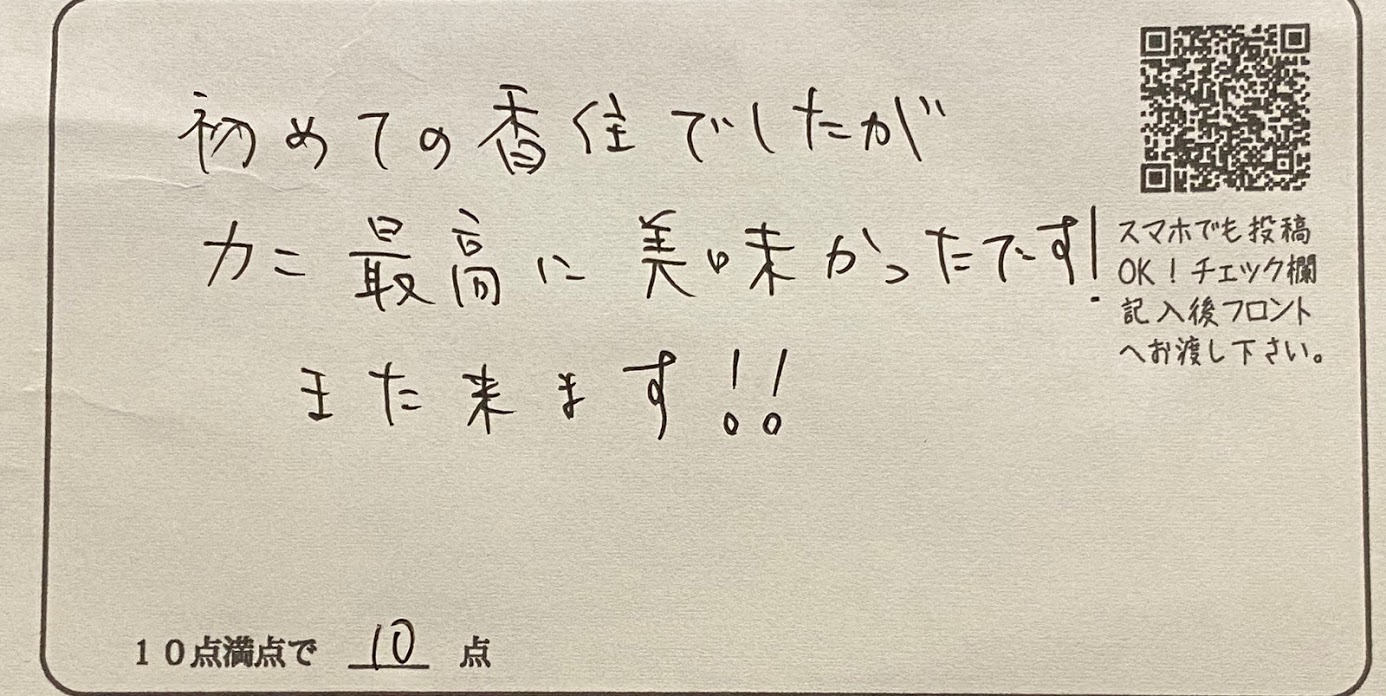 初めての香住でしたが
カニ最高に美味かったです!
また来ます!!
スマホでも投稿
OK!チェック欄
記入後フロント
へお渡し下さい。
10点満点で 10 点